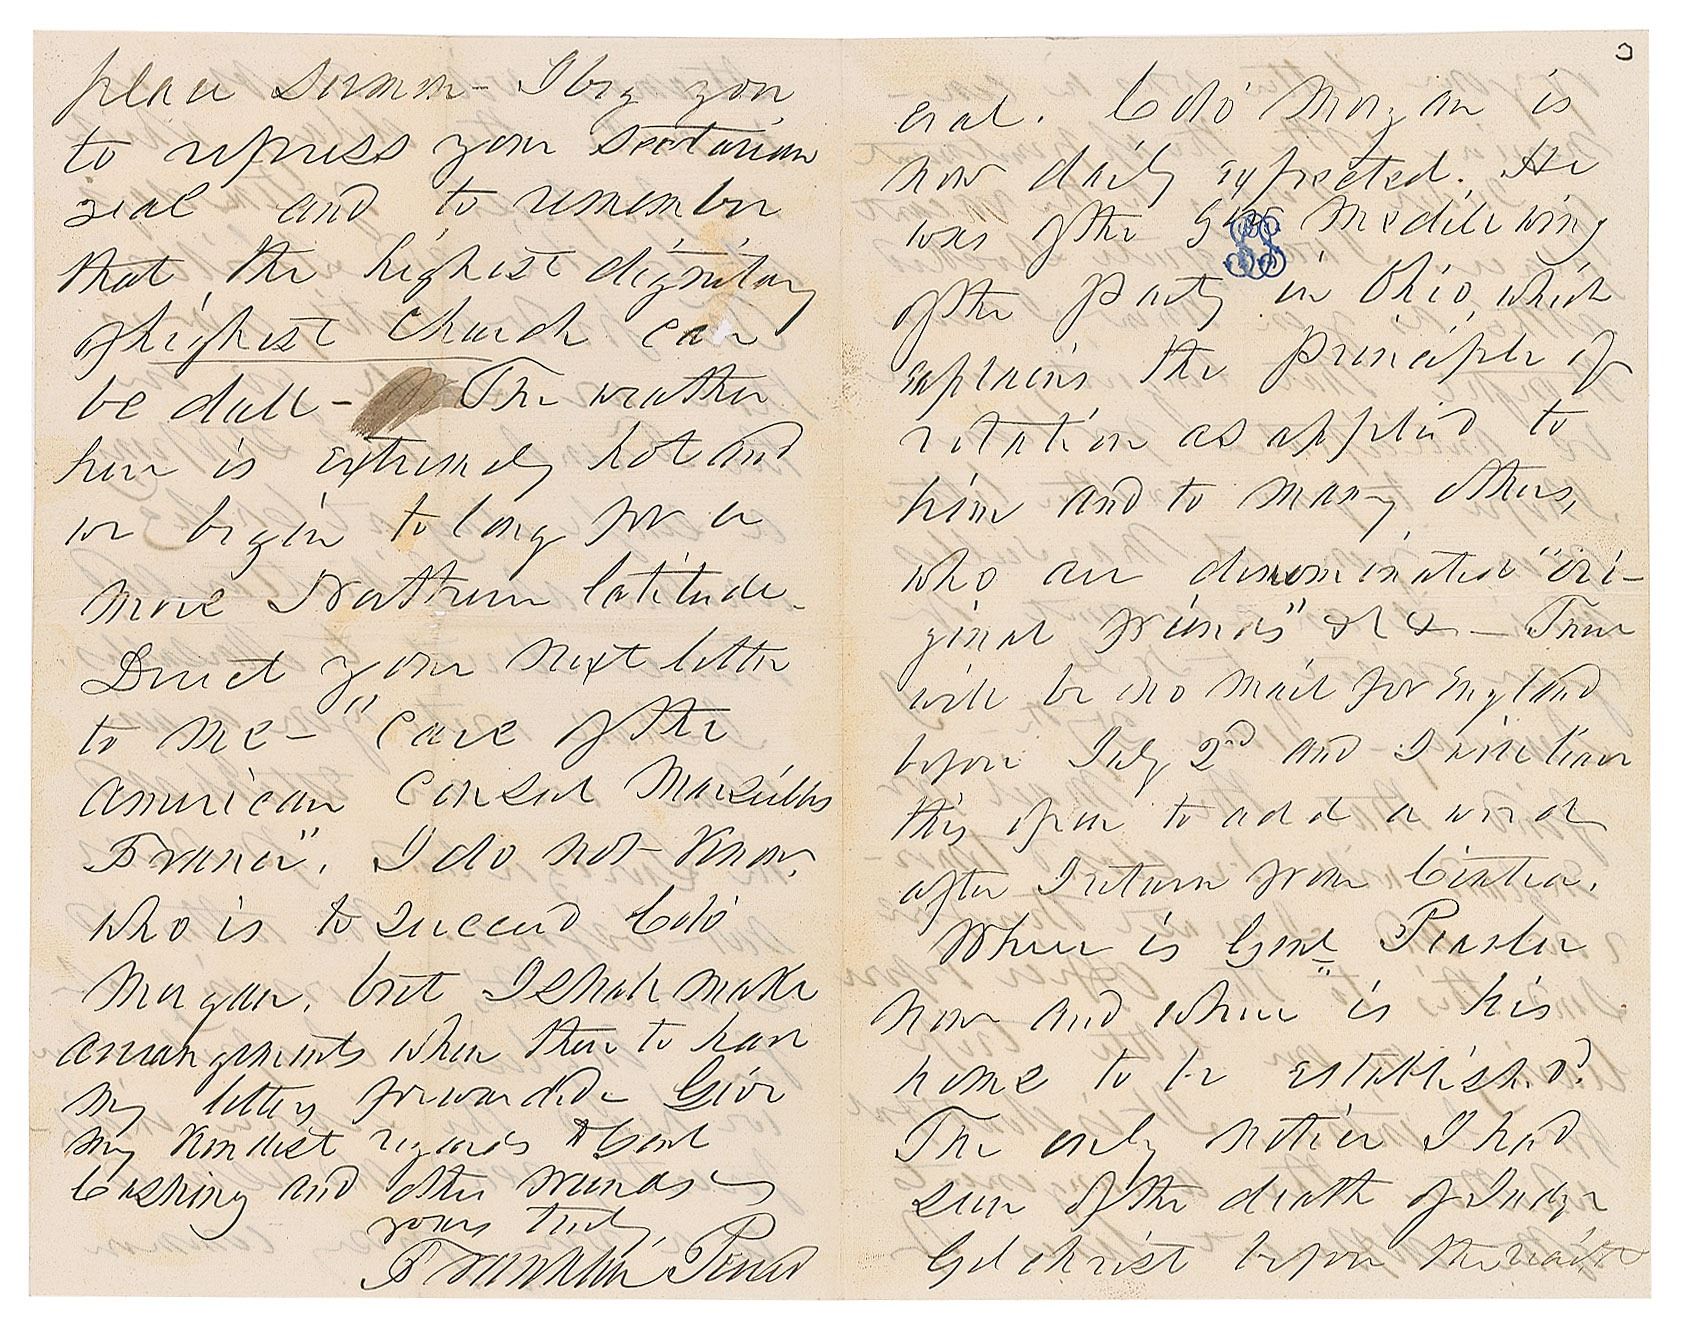 place sermon - I beg you
to repress your sectarian
zeal and to remember
that the highest dignitary
of highest Church can
be dull - The weather
here is extremely hot and
we begin to long for a
more Northern latitude.
Direct your next letter
to me - "Care of the
American Consul Marseilles
France". I do not know
who is to succeed Colo
Morgan, but I shall make
arrangements when there to have
my letters forwarded. Give
my kindest regards to Genl
Cushing and other friends -
yours truly
Franklin Pierce
3
eral. Colo Morgan is
now daily expected. He
was of the Medill wing
of the Party in Ohio, which
explains the principle of
rotation as applied to
him and to many others,
who are denominated "ori-
ginal friends" &c &c - There
will be no mail for England
before July 2nd and I will leave
this open to add a word
after I return from Cintra.
Where is Genl Peaslee
now and where is his
home to be established?
The only notice I had
seen of the death of Judge
Gilchrist before the